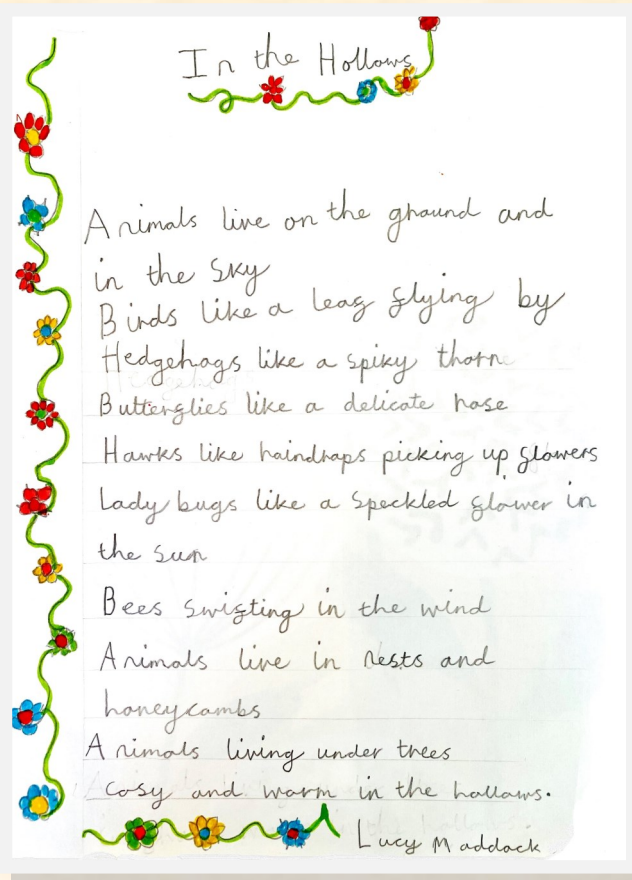 In the Hollows
Animals live on the ground and
in the sky
Birds like a leaf flying by
Hedgehogs like a spiky thorn
Butterflies like a delicate rose
Hawks like raindrops picking up flowers
Lady bugs like a speckled flower in
the sun
Bees swifting in the wind
Animals live in nests and
honeycombs
Animals living under trees
cosy and warm in the hollows.
Lucy Maddock